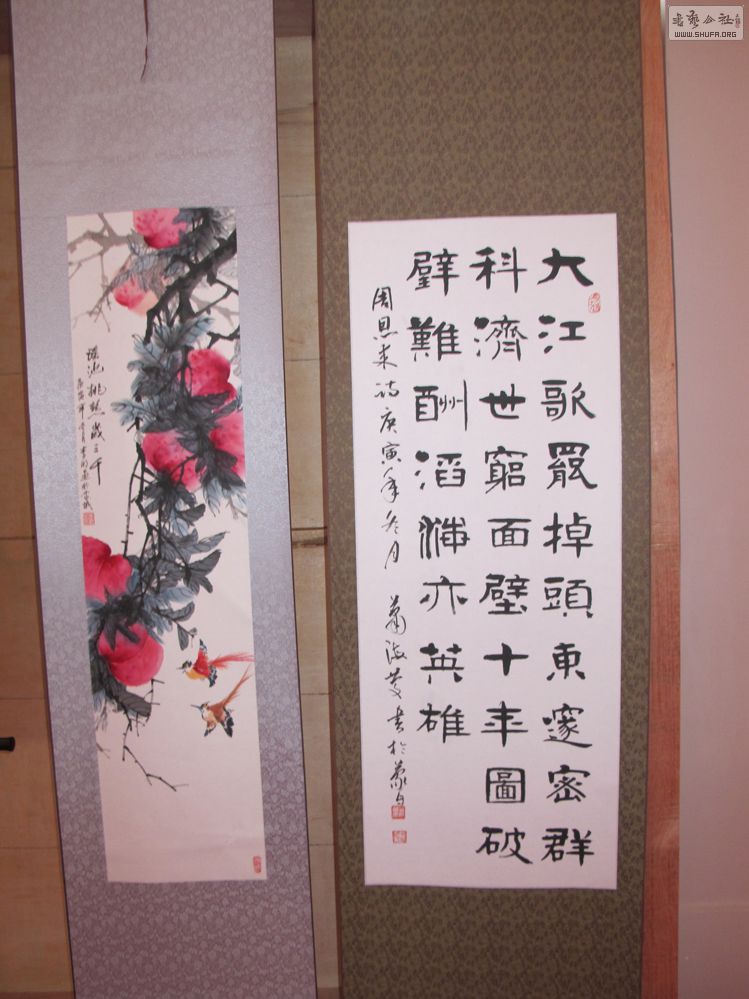 大江歌罷掉頭東邃密群
科濟世窮面壁十年圖破
壁難酬滔海亦英雄
周恩来诗庚寅年冬月
瑶池桃熟歲三千
书艺公社
WWW.SHUFA.ORG